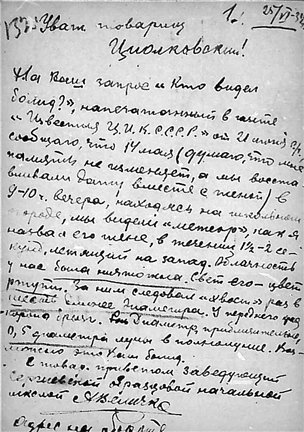 Уваж товарищ
Циолковский!
На Ваш запрос „Кто видел
болид?", напечатанный в газете
„Известия Ц.И.К.С.С.С.Р." от июня
сообщаю, что 14 мая (думаю, что мне
память не изменяет, а мы восста
вливали дату вместе с женой) в
9-10 ч. вечера, находясь на
мы видели „метеор", как я
назвал его жене, в течении 1½-2 се
кунд, летящий на запад. Облачность
у нас была ничтожна. Свет его - цвет
ртути. За ним следовал „хвост" раз в
шесть более диаметра. У переднего
Диаметр приблизительно,
0,5 диаметра луны в полнолуние. Воз
можно это Ваш болид.
С товар. приветом заведующий
образцовой начальной
школой
Адрес на